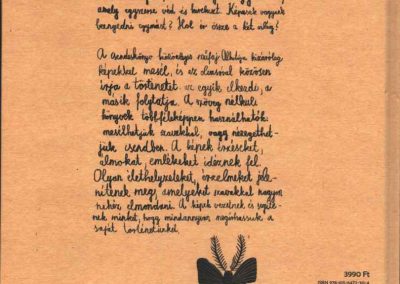 amely egyszerre véd is bezárt. Képesek vagyunk
beengedni egymást? Hol ér össze a két világ?
A csendeskönyv különleges műfaj. Alkotója kizárólag
képekkel mesél, és az olvasóval közösen
írja a történetet: az egyik elkezdi, a
másik folytatja. A szöveg nélküli
könyvek többféleképpen használhatók:
mesélhetjük szavakkal, vagy nézegethet-
jük csendben. A képek érzéseket,
álmokat, emlékeket idéznek fel.
Olyan élethelyzeteket, érzelmeket jele-
nítenek meg, amelyeket szavakkal nagyon
nehéz elmondani. A képek vezetnek és segíte-
nek minket, hogy mindannyian megírhassuk a
saját történetünket.
3990 Ft